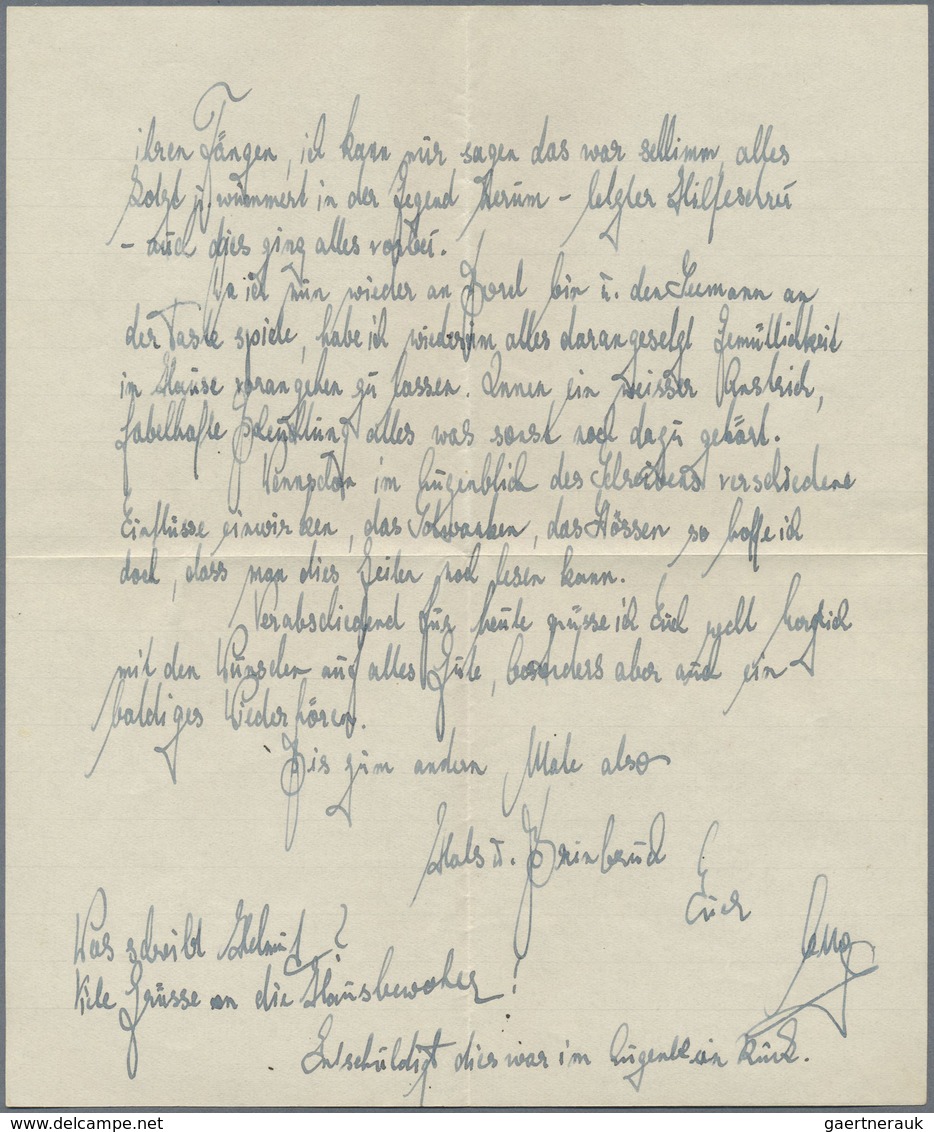 ihren Fängen, ich kann nur sagen das war schlimm, alles
kotzt u. wummert in der Gegend herum – letzter Hilfeschrei
– auch dies ging alles vorbei.
Da ich nun wieder an Bord bin u. den Seemann an
der Taste spiele, habe ich wiederum alles darangesetzt Gemütlichkeit
im Hause vorangehen zu lassen. Innen ein weisser Anstrich,
fabelhafte Beleuchtung alles was sonst noch dazu gehört.
Wenn im Augenblick des Schreibens verschiedene
Einflüsse einwirken, das Schwanken, das Stossen so hoffe ich
doch, dass man dies Zeilen noch lesen kann.
Verabschiedend für heute grüsse ich Euch recht herzlich
mit den Wünschen auf alles Gute, besonders aber auch ein
baldiges Wiederhören.
Bis zum andern Male also
Hals u. Beinbruch
Euer
Was schreibt Helmut?
Viele Grüsse an die Hausbewohner!
Entschuldigt dies war im Augenbl ein Ruck.
delcampe.net
gaertnerauk